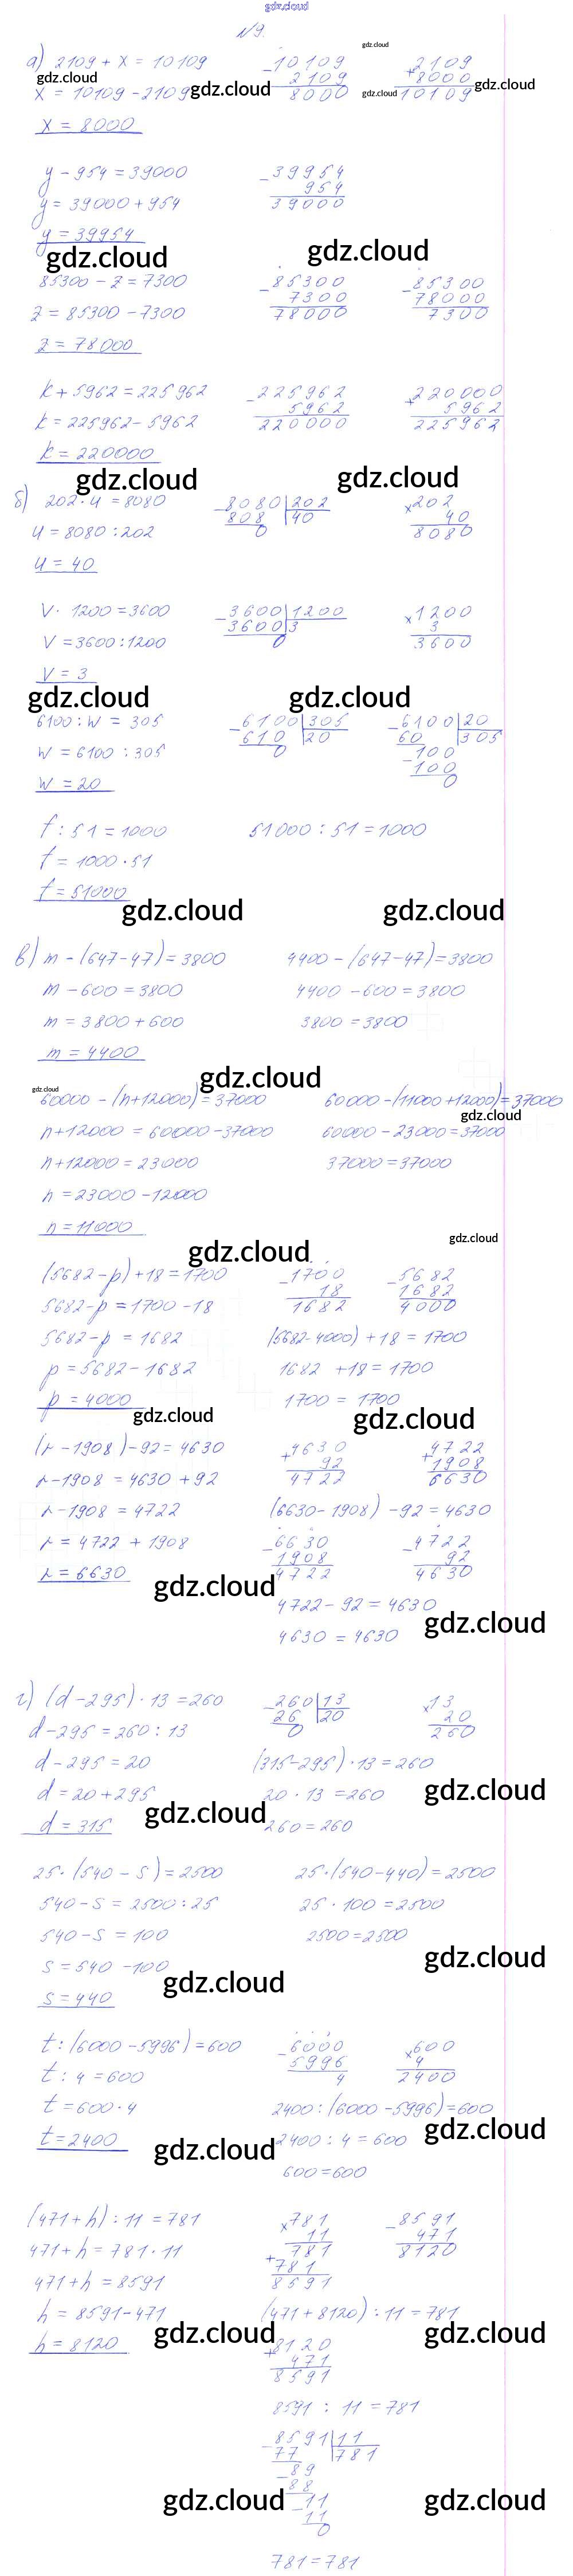 gdz.cloud
№9.
а) 2109 + x = 10109
x = 10109 - 2109
x = 8000
- 10109
2109
8000
+ 2109
8000
10109
gdz.cloud
gdz.cloud
gdz.cloud
gdz.cloud
gdz.cloud
y - 954 = 39000
y = 39000 + 954
y = 39954
- 39954
954
39000
gdz.cloud
gdz.cloud
85300 - z = 7300
z = 85300 - 7300
z = 78000
- 85300
7300
78000
- 85300
78000
7300
k + 5962 = 225962
k = 225962 - 5962
k = 220000
- 225962
5962
220000
+ 220000
5962
225962
gdz.cloud
gdz.cloud
б) 202 · u = 8080
u = 8080 : 202
u = 40
- 8080 | 202
808 | 40
0
× 202
40
8080
v · 1200 = 3600
v = 3600 : 1200
v = 3
- 3600 | 1200
3600 | 3
0
× 1200
3
3600
gdz.cloud
gdz.cloud
6100 : w = 305
w = 6100 : 305
w = 20
- 6100 | 305
610 | 20
0
- 6100 | 20
60 | 305
- 100
100
0
f : 51 = 1000
f = 1000 · 51
f = 51000
51000 : 51 = 1000
gdz.cloud
gdz.cloud
в) m - (647 - 47) = 3800
m - 600 = 3800
m = 3800 + 600
m = 4400
4400 - (647 - 47) = 3800
4400 - 600 = 3800
3800 = 3800
gdz.cloud
gdz.cloud
60000 - (n + 12000) = 37000
n + 12000 = 60000 - 37000
n + 12000 = 23000
n = 23000 - 12000
n = 11000
60000 - (11000 + 12000) = 37000
gdz.cloud
60000 - 23000 = 37000
37000 = 37000
gdz.cloud
gdz.cloud
(5682 - p) + 18 = 1700
5682 - p = 1700 - 18
5682 - p = 1682
p = 5682 - 1682
p = 4000
- 1700
18
1682
- 5682
1682
4000
(5682 - 4000) + 18 = 1700
1682 + 18 = 1700
1700 = 1700
gdz.cloud
gdz.cloud
(r - 1908) - 92 = 4630
r - 1908 = 4630 + 92
r - 1908 = 4722
r = 4722 + 1908
r = 6630
+ 4630
92
4722
+ 4722
1908
6630
(6630 - 1908) - 92 = 4630
- 6630
1908
4722
- 4722
92
4630
4722 - 92 = 4630
4630 = 4630
gdz.cloud
gdz.cloud
г) (d - 295) · 13 = 260
d - 295 = 260 : 13
d - 295 = 20
d = 20 + 295
d = 315
- 260 | 13
26 | 20
0
× 13
20
260
(315 - 295) · 13 = 260
20 · 13 = 260
260 = 260
gdz.cloud
gdz.cloud
25 · (540 - s) = 2500
540 - s = 2500 : 25
540 - s = 100
s = 540 - 100
s = 440
25 · (540 - 440) = 2500
25 · 100 = 2500
2500 = 2500
gdz.cloud
gdz.cloud
t : (6000 - 5996) = 600
t : 4 = 600
t = 600 · 4
t = 2400
- 6000
5996
4
× 600
4
2400
2400 : (6000 - 5996) = 600
2400 : 4 = 600
600 = 600
gdz.cloud
gdz.cloud
(471 + h) : 11 = 781
471 + h = 781 · 11
471 + h = 8591
h = 8591 - 471
h = 8120
× 781
11
781
+ 781
8591
- 8591
471
8120
(471 + 8120) : 11 = 781
gdz.cloud
gdz.cloud
+ 8120
471
8591
8591 : 11 = 781
- 8591 | 11
77 | 781
- 89
88
- 11
11
0
gdz.cloud
gdz.cloud
781 = 781